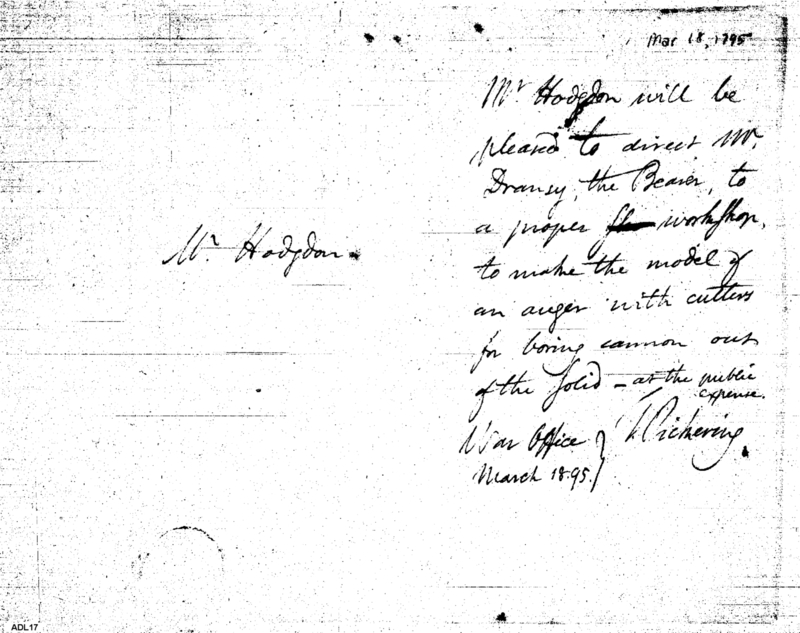 Mar 18, 1795
Mr Hodgdon will be
pleased to direct Mr.
Dransy, the Bearer, to
a proper workshop,
to make the model of
an auger with cutters
for boring cannon out
of the solid – at the public
expense.
War Office
March 18. 95.
T Pickering
Mr. Hodgdon.
ADL17